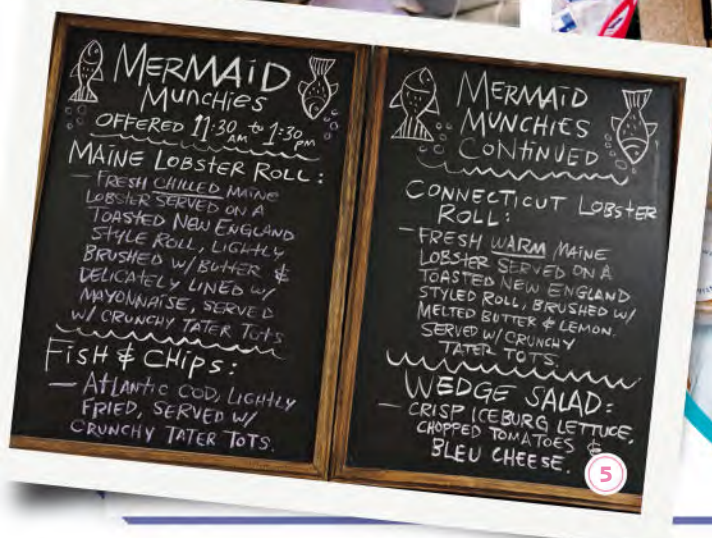 MERMAID
MUNCHIES
OFFERED 11:30 AM to 1:30 PM
MAINE LOBSTER ROLL:
— FRESH CHILLED MAINE
LOBSTER SERVED ON A
TOASTED NEW ENGLAND
STYLE ROLL, LIGHTLY
BRUSHED W/ BUTTER &
DELICATELY LINED W/
MAYONNAISE, SERVED
W/ CRUNCHY TATER TOTS
FISH & CHIPS:
— ATLANTIC COD, LIGHTLY
FRIED, SERVED W/
CRUNCHY TATER TOTS.
MERMAID
MUNCHIES
CONTINUED
CONNECTICUT LOBSTER
ROLL:
— FRESH WARM MAINE
LOBSTER SERVED ON A
TOASTED NEW ENGLAND
STYLED ROLL, BRUSHED W/
MELTED BUTTER & LEMON.
SERVED W/ CRUNCHY
TATER TOTS.
WEDGE SALAD:
— CRISP ICEBURG LETTUCE,
CHOPPED TOMATOES &
BLEU CHEESE.
5